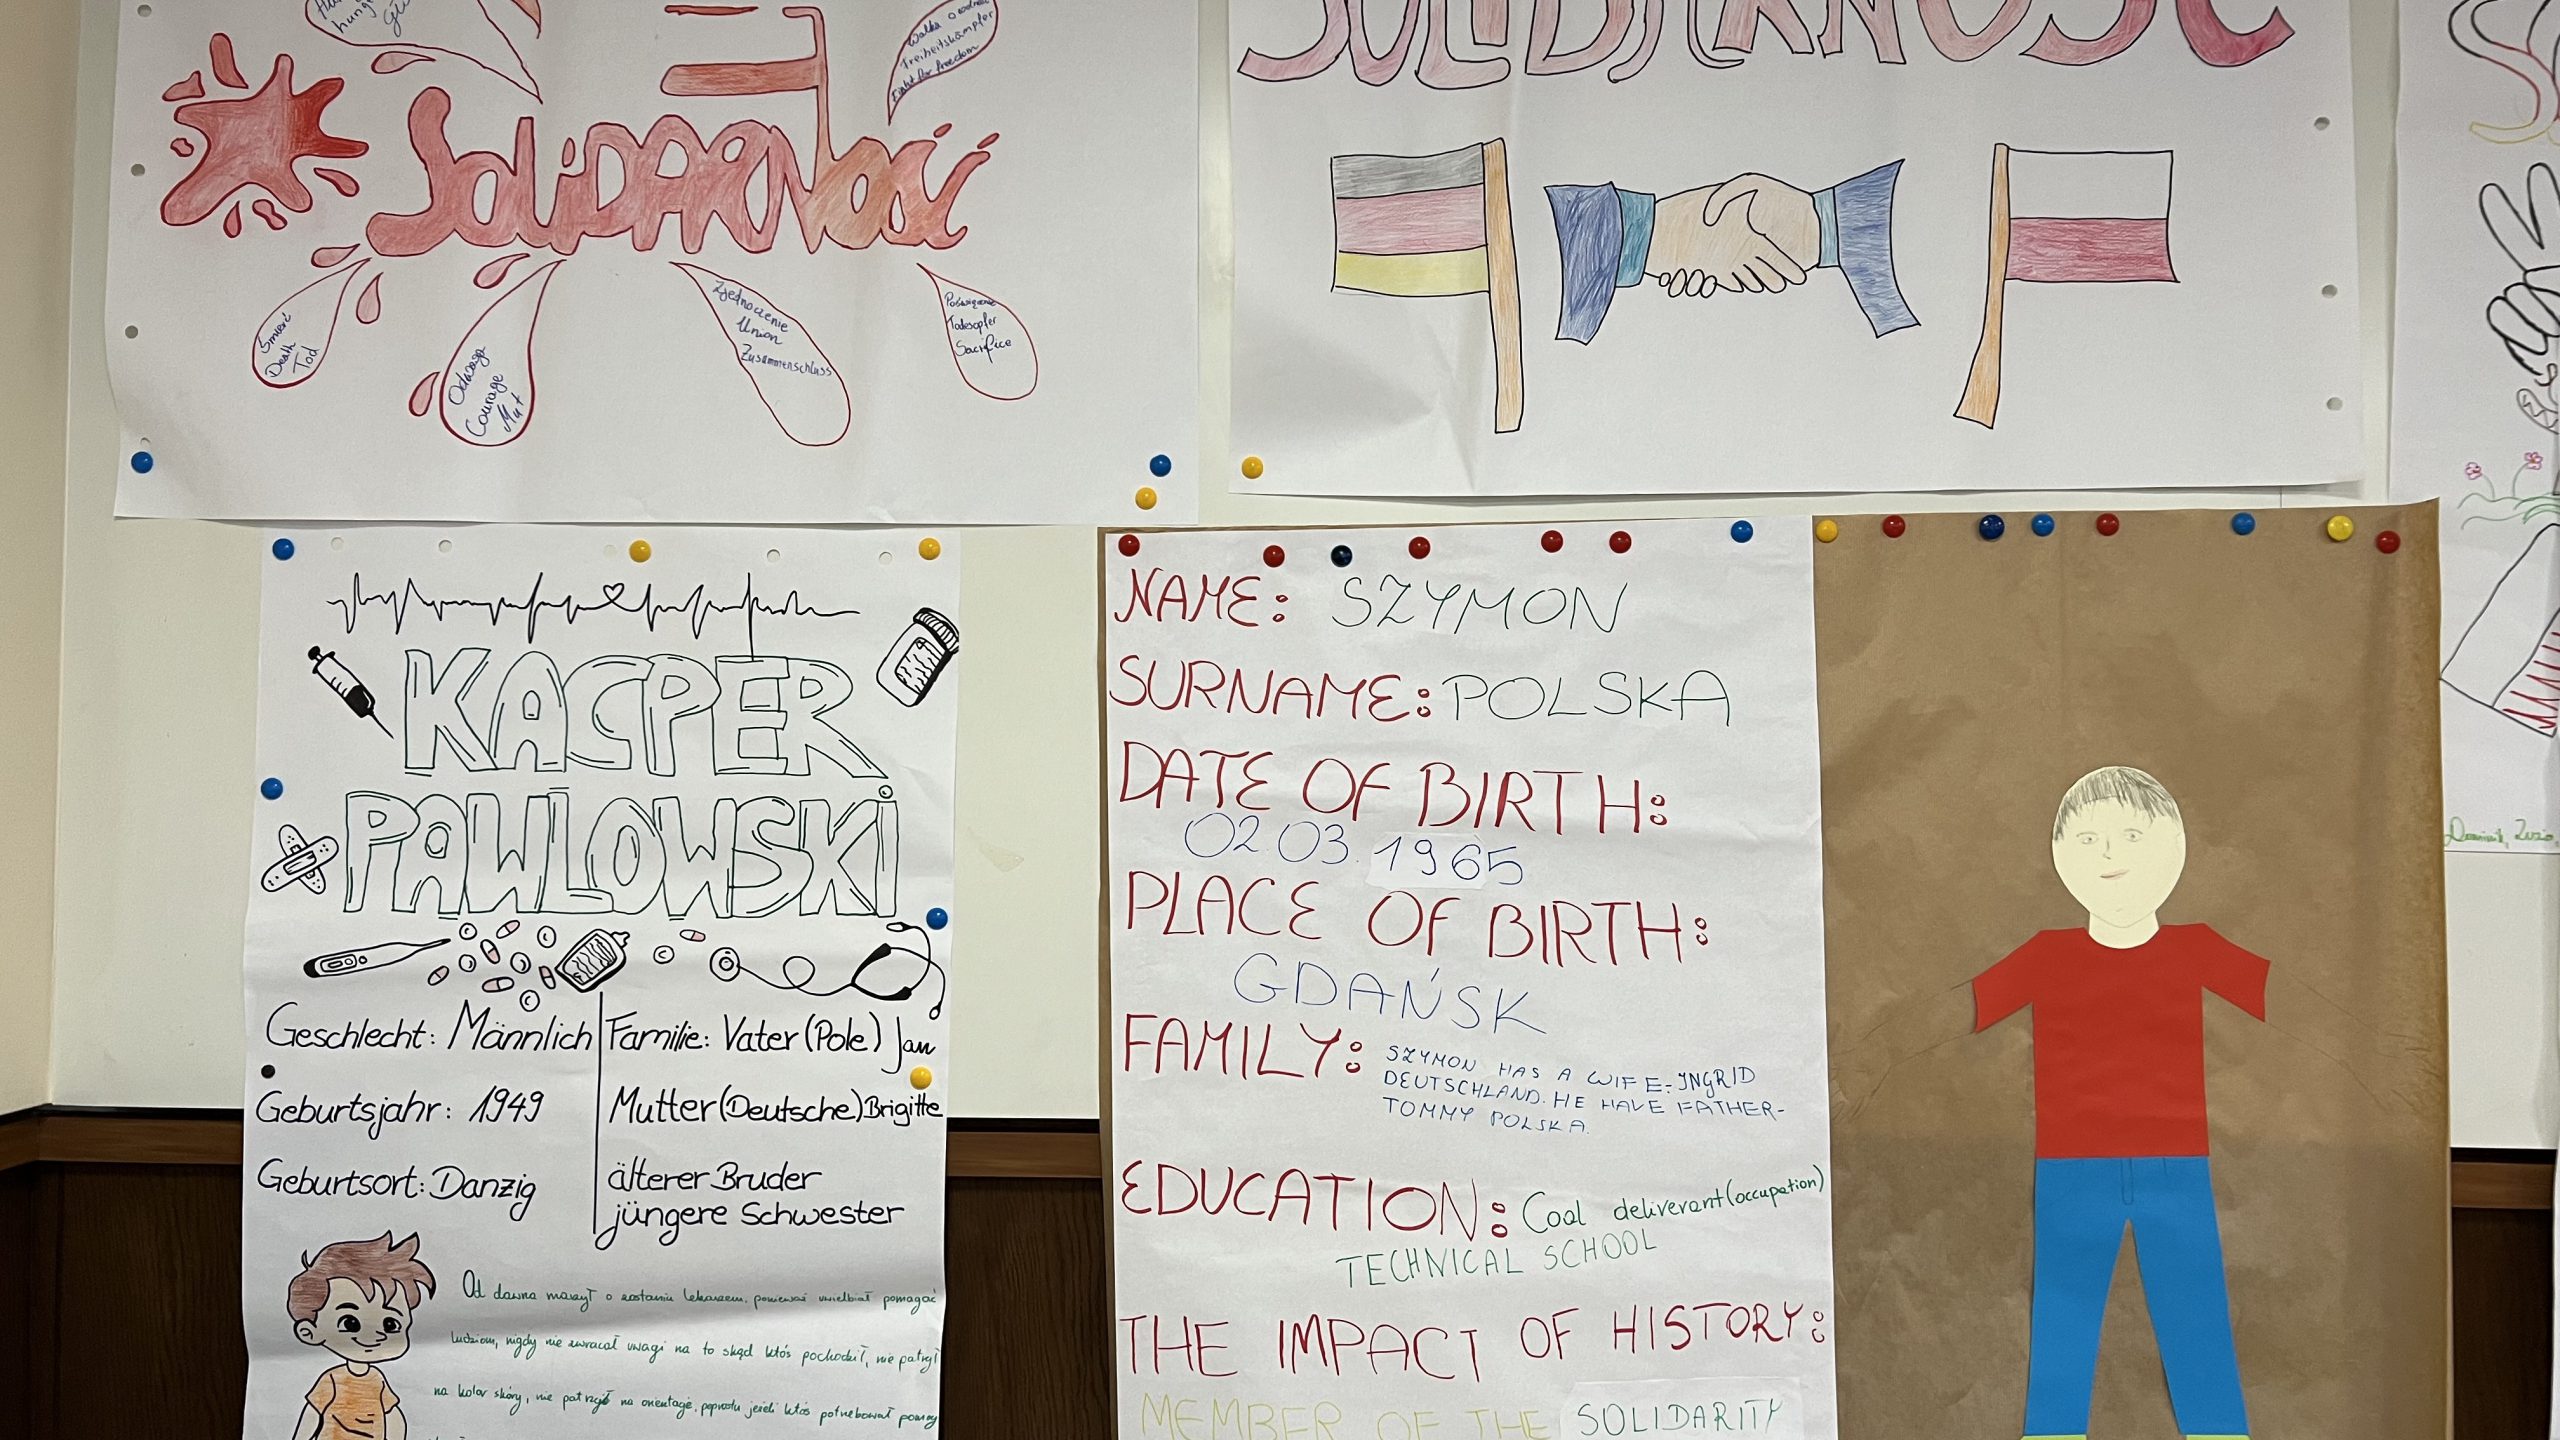 hung
Walka o wolność
Freiheitskämpfer
Fight for freedom
SOLIDARNOŚĆ
Śmierć
Death
Tod
Odwaga
Courage
Mut
Zjednoczenie
Union
Zusammenschluss
Poświęcenie
Todesopfer
Sacrifice
SOLIDARNOŚĆ
KACPER
PAWLOWSKI
Geschlecht: Männlich
Geburtsjahr: 1949
Geburtsort: Danzig
Familie: Vater (Pole) Jan
Mutter (Deutsche) Brigitte
älterer Bruder
jüngere Schwester
Od dawna marzył o zostaniu lekarzem, ponieważ uwielbiał pomagać
ludziom, nigdy nie zwracał uwagi na to skąd ktoś pochodził, nie patrzył
na kolor skóry, nie patrzył na orientację, poprostu jeżeli ktoś potrzebował pomocy
NAME: SZYMON
SURNAME: POLSKA
DATE OF BIRTH:
02.03.1965
PLACE OF BIRTH:
GDAŃSK
FAMILY: SZYMON HAS A WIFE-INGRID
DEUTSCHLAND. HE HAVE FATHER-
TOMMY POLSKA.
EDUCATION: Coal deliverant (occupation)
TECHNICAL SCHOOL
THE IMPACT OF HISTORY:
MEMBER OF THE SOLIDARITY